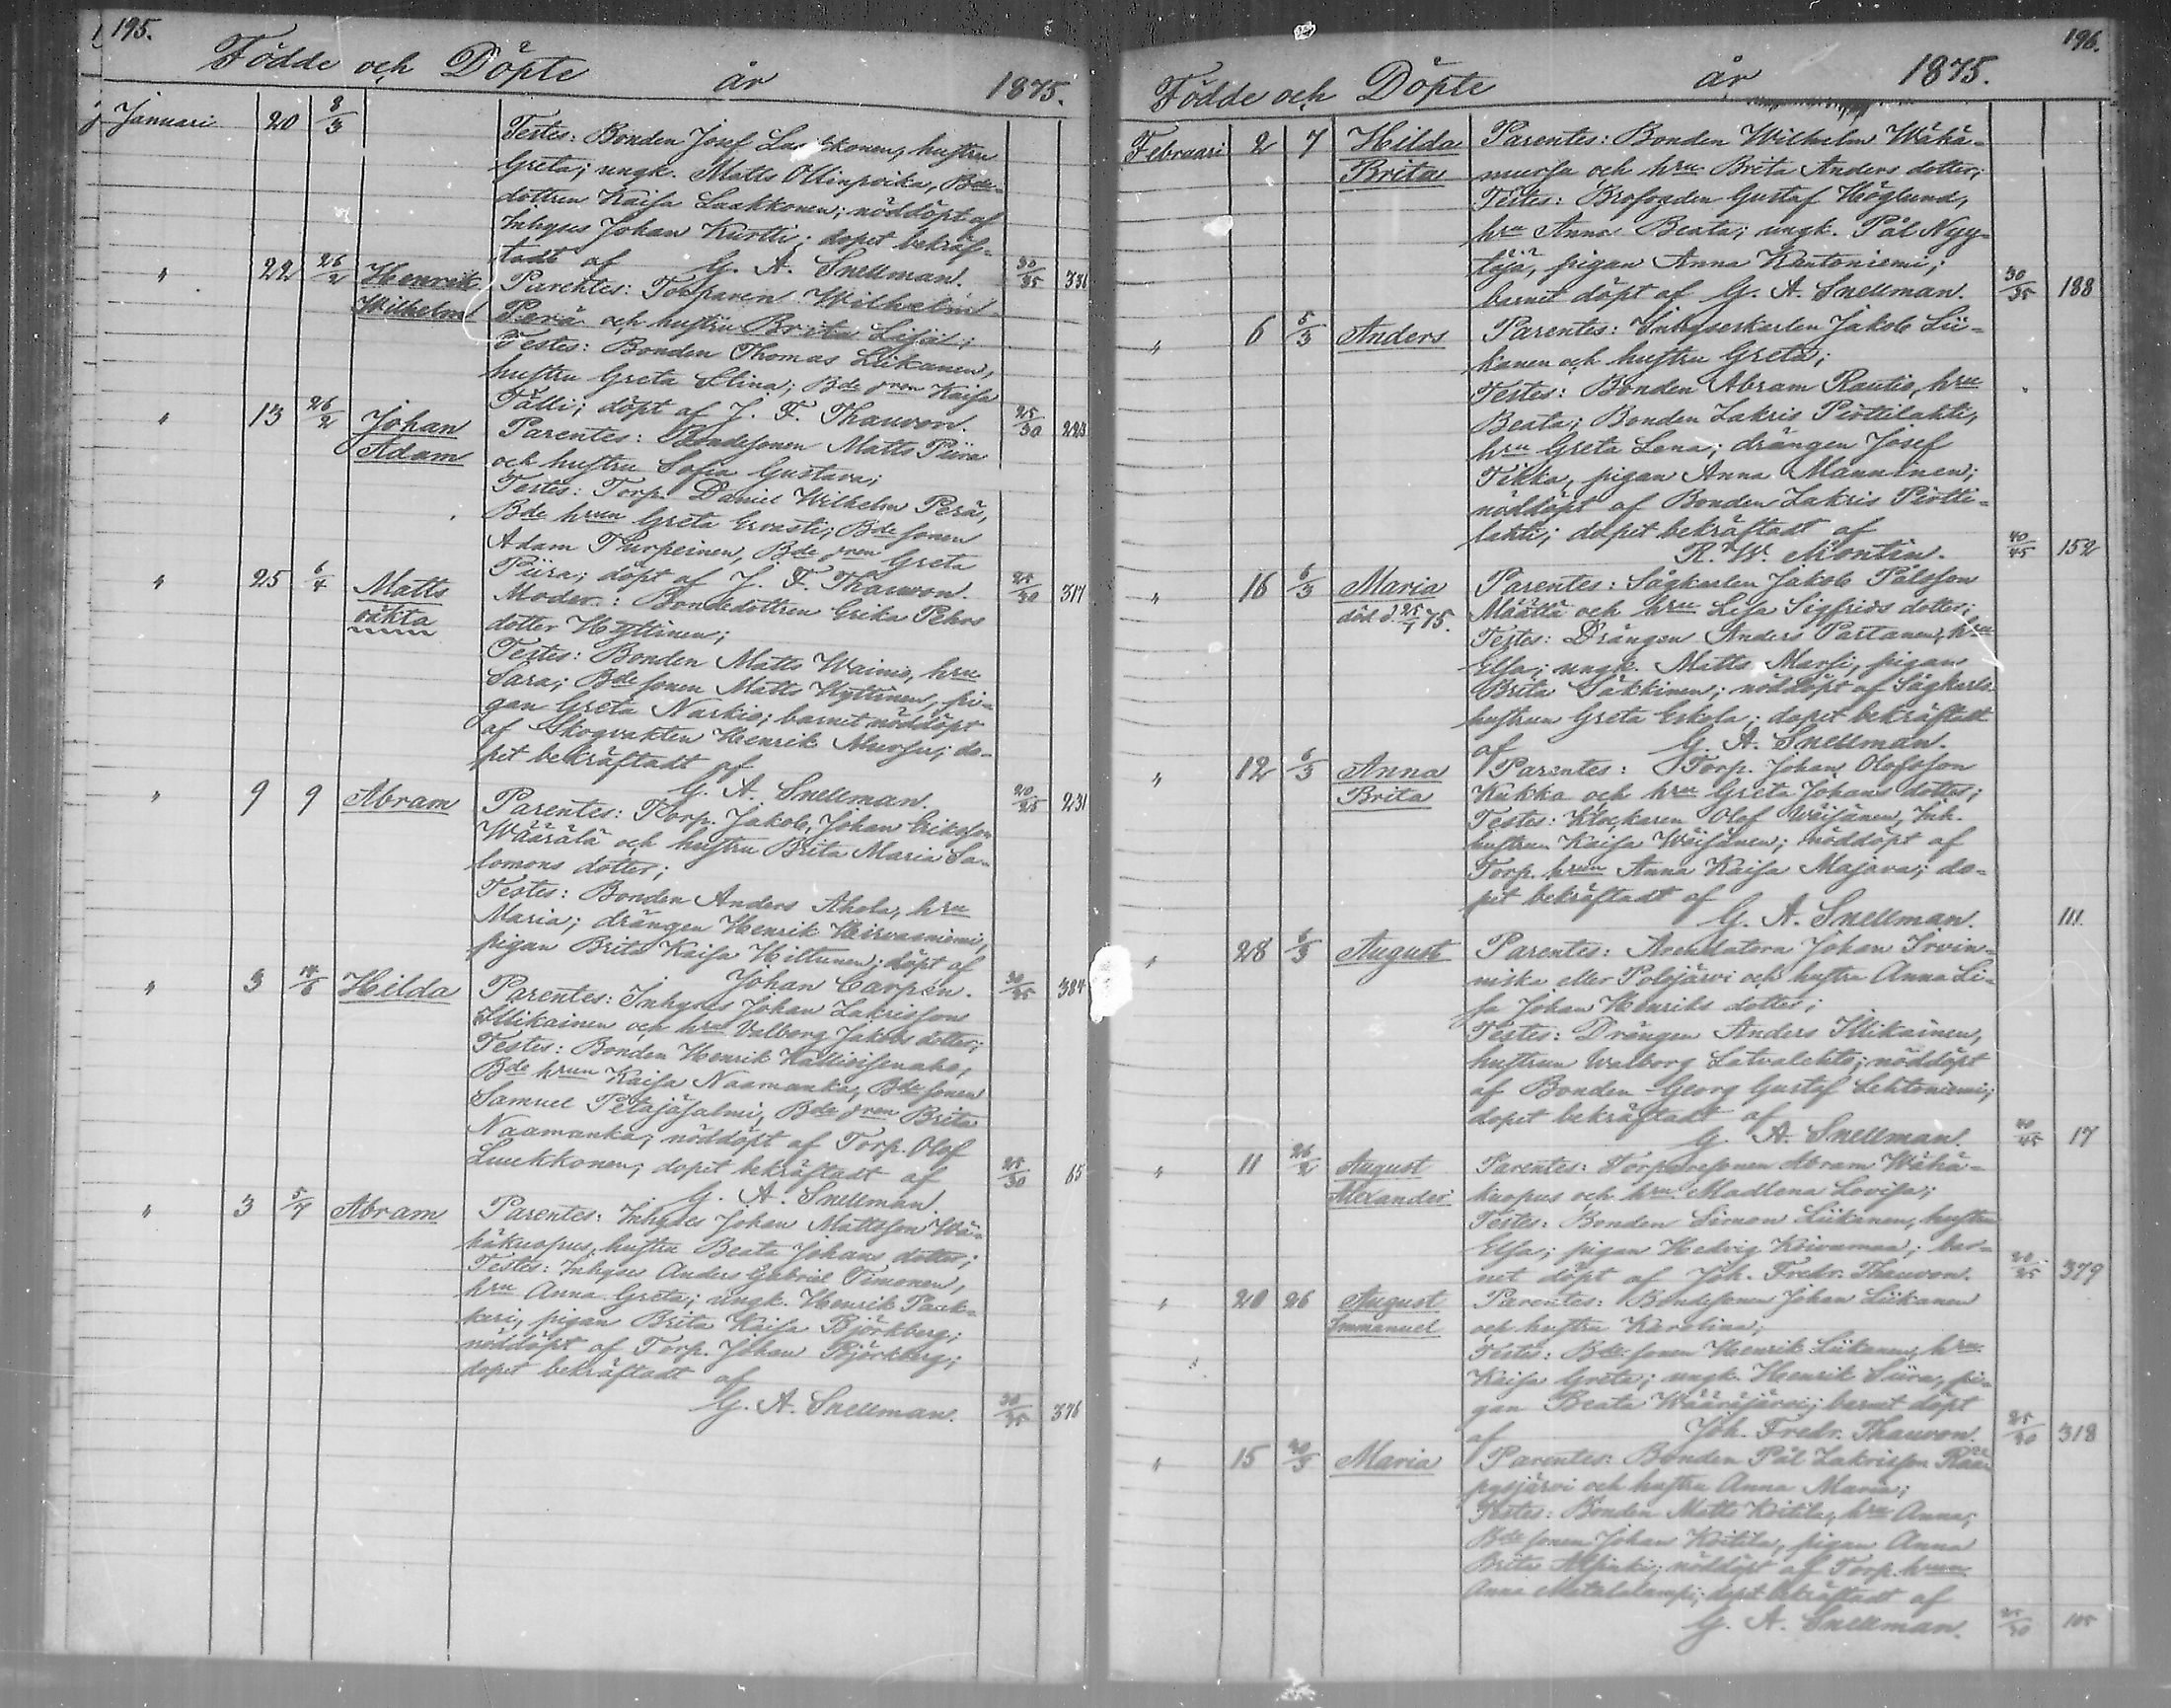 195.
Födde och Döpte år 1875.
Januari 20 8/3 Testes: Bonden Josef Laakkonen, hustru
Greta; ungk. Matts Ollinpoika, Bde-
dottren Kaisa Laakkonen; nöddöpt af
Inhyses Johan Kurtti; dopet bekräf-
tadt af G. A. Snellman. 30/35 331
" 22 26/2 Henrik Parentes: Torparen Wilhelm
Wilhelm Perä och hustru Brita Lisa;
Testes: Bonden Thomas Liikanen,
hustru Greta Stina; Bde dren Kaisa
Tälli; döpt af J. F. Thauvon. 25/30 223
" 13 26/2 Johan Parentes: Bondesonen Matts Piira
Adam och hustru Sofia Gustava;
Testes: Torp. Daniel Wilhelm Perä,
Bde hrun Greta Ervasti; Bde sonen
Adam Purpeinen, Bde dren Greta
Piira; döpt af J. F. Thauvon. 25/30 317
" 25 6/4 Matts Moder: Bondedottren Erika Pehrs
oäkta dotter Hyttinen;
Testes: Bonden Matts Wainio, hru
Sara; Bde sonen Matts Hyttinen, pi-
gan Greta Narkio; barnet nöddöpt
af Skogvakten Henrik Mursu; do-
pet bekräftadt af
G. A. Snellman. 20/25 231
" 9 9 Abram Parentes: Torp. Jakob Johan Eriksson
Wäärälä och hustru Brita Maria Sa-
lomons dotter;
Testes: Bonden Anders Ahola, hru
Maria; drängen Henrik Hirvasniemi,
pigan Brita Kaisa Hiltunen; döpt af
Johan Carpén. 30/35 384
" 3 14/6 Hilda Parentes: Inhyses Johan Zakrisson
Illikainen och hru Valborg Jakobs dotter;
Testes: Bonden Henrik Kallioisenaho,
Bde hrun Kaisa Naamanka, Bde sonen
Samuel Petäjäsalmi, Bde dren Brita
Naamanka; nöddöpt af Torp. Olof
Luukkonen; dopet bekräftadt af
G. A. Snellman. 25/30 65
" 3 5/7 Abram Parentes: Inhyses Johan Mattsson Wä-
häkuopus, hustru Beata Johans dotter;
Testes: Inhyses Anders Gabriel Timonen,
hru Anna Greta; ungk. Henrik Pauk-
keri, pigan Brita Kaisa Björkberg;
nöddöpt af Torp. Johan Björkberg;
dopet bekräftadt af
G. A. Snellman. 30/35 376
196.
Födde och Döpte år 1875.
Februari 2 7 Hilda Parentes: Bonden Wilhelm Wähä-
Brita mursa och hru Brita Anders dotter;
Testes: Krofogden Gustaf Höglund,
hru Anna Beata; ungk. Pål Nyy-
täjä, pigan Anna Kantoniemi;
barnet döpt af G. A. Snellman. 30/35 188
" 6 5/3 Anders Parentes: Inhyseskarlen Jakob Lii-
kanen och hustru Greta;
Testes: Bonden Abram Rautio, hru
Beata; Bonden Zakris Piöttilahti,
hru Greta Lena; drängen Josef
Tikka, pigan Anna Manninen;
nöddöpt af Bonden Zakris Piötti-
lahti; dopet bekräftadt af
R. W. Montin. 40/45 152
" 16 6/3 Maria Parentes: Sågkarlen Jakob Pålsson
död d. 25/7 75. Määttä och hru Lisa Sigfrids dotter;
Testes: Drängen Anders Partanen, hru
Elsa; ungk. Matts Marsi, pigan
Brita Säkkinen; nöddöpt af Sågkarls-
hustrun Greta Eskola; dopet bekräftadt
af G. A. Snellman.
" 12 6/3 Anna Parentes: Torp. Johan Olofsson
Brita Kukka och hru Greta Johans dotter;
Testes: Klockaren Olof Wäisänen, Inh.
hustrun Kaisa Wäisänen; nöddöpt af
Torp. hrun Anna Kaisa Majava; do-
pet bekräftadt af
G. A. Snellman. 111.
" 28 6/3 August Parentes: Arendatorn Johan Irvin-
niska eller Polojärvi och hustru Anna Li-
sa Johan Henriks dotter;
Testes: Drängen Anders Illikainen,
hustrun Walborg Latvalehto; nöddöpt
af Bonden Georg Gustaf Lehtoniemi;
dopet bekräftadt af
G. A. Snellman. 40/45 17
" 11 26/2 August Parentes: Torparesonen Abram Wähä-
Alexander kuopus och hru Madlena Lovisa;
Testes: Bonden Simon Liikanen, hustru
Elsa; pigan Hedvig Koivumaa; bar-
net döpt af Joh. Fredr. Thauvon. 20/25 379
" 20 26 August Parentes: Bondesonen Johan Liikanen
Immanuel och hustru Karolina;
Testes: Bde sonen Henrik Liikanen, hru
Kaisa Greta; ungk. Henrik Siira, pi-
gan Beata Wääräjärvi; barnet döpt
af Joh. Fredr. Thauvon. 25/30 318
" 15 20/3 Maria Parentes: Bonden Pål Zakrisson Rää-
pysjärvi och hustru Anna Maria;
Testes: Bonden Matts Koitila, hru Anna;
Bde sonen Johan Koitila, pigan Anna
Brita; nöddöpt af Torp. hrun
Anna Matalalampi; dopet bekräftadt af
G. A. Snellman. 25/30 105